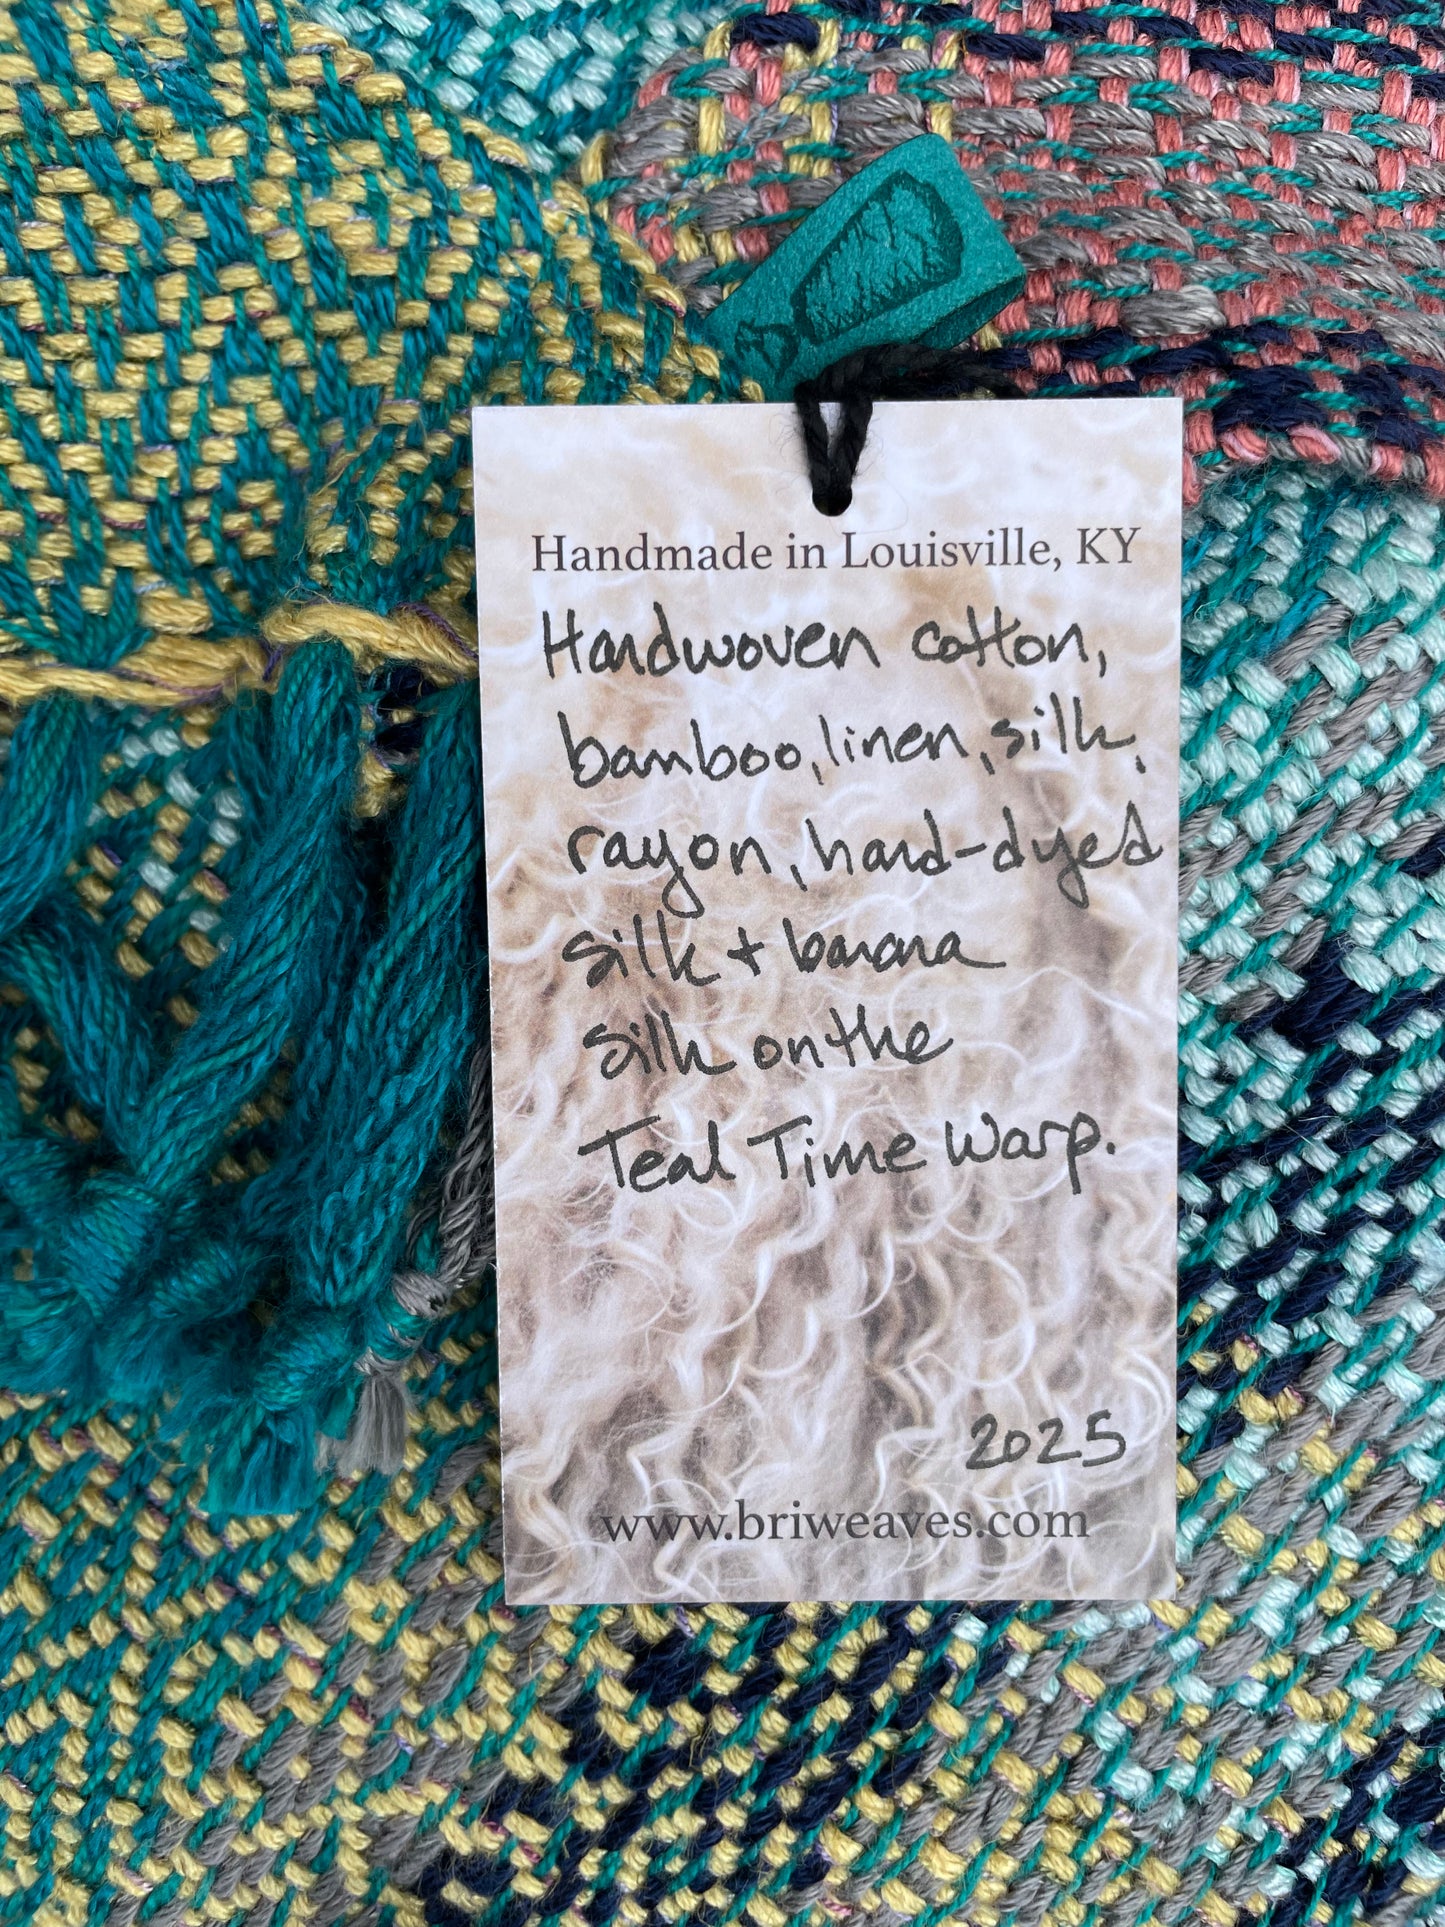 Handmade in Louisville, KY
Handwoven cotton,
bamboo, linen, silk,
rayon, hand-dyed
silk + banana
silk on the
Teal Time Warp.
2025
www.briweaves.com